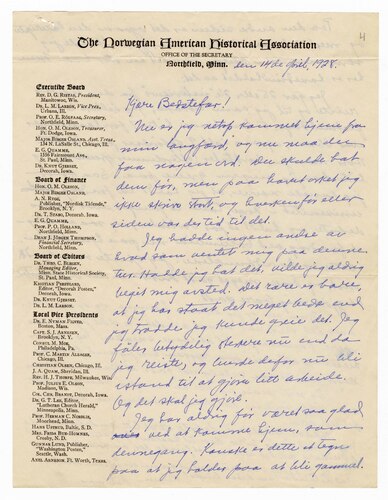 4
The Norwegian American Historical Association
OFFICE OF THE SECRETARY
Northfield, Minn. den 14de April, 1928.
Executive Board
Rev. D. G. Ristad, President,
Manitowoc, Wis.
Dr. L. M. Larson, Vice Pres.,
Urbana, Ill.
Prof. O. E. Rölvaag, Secretary,
Northfield, Minn.
Hon. O. M. Oleson, Treasurer,
Ft. Dodge, Iowa.
Major Birger Osland, Asst. Treas.
134 N. LaSalle St., Chicago, Ill.
E. G. Quamme,
St. Paul, Minn.
Dr. Knut Gjerset,
Decorah, Iowa.
Board of Finance
Hon. O. M. Oleson,
Major Birger Osland,
A. N. Rygg,
Publisher, "Nordisk Tidende,"
Brooklyn, N. Y.
Dr. T. Stabo, Decorah, Iowa.
E. G. Quamme,
Prof. P. O. Holland,
Northfield, Minn.
Dean J. Jørgen Thompson,
Financial Secretary,
Northfield, Minn.
Board of Editors
Dr. Theo. C. Blegen,
Managing Editor,
Minn. State Historical Society,
St. Paul, Minn.
Kristian Prestgard,
Editor, "Decorah Posten,"
Decorah, Iowa.
Dr. Knut Gjerset
Dr. L. M. Larson,
Local Vice Presidents
Boston, Mass.
Brooklyn, N. Y.
Philadelphia, Pa.
Chicago, Ill.
Christian Olsen, Chicago, Ill.
J. A. Quam, Sheridan, Ill.
Rev. H. J. Thorpe, Milwaukee, Wis.
Prof. Julius E. Olson,
Madison, Wis.
Decorah, Iowa.
Dr. G. T. Lee, Editor,
"Lutheran Church Herald,"
Minneapolis, Minn.
Prof. Herman C. Nordlie,
Moorhead, Minn.
Crosby, N. D.
Gunnar Lund, Publisher,
"Washington Posten,"
Seattle, Wash.
Ft. Worth, Texas.
Kjere Bestefar!
Nu er jeg netop kommet hjem fra
min langfærd, og nu maa du
faa nogen ord. Du skulde hat
dem før, men paa havet orket jeg
ikke skrive stort, og hverken før eller
siden var det tid til det.
Jeg hadde ingen anelse av
hvad som ventet mig paa denne
tur. Havde jeg hat det, vilde jeg aldrig
vegit mig avsted. Det rare er bare,
at jeg har staat det meget bedre end
jeg trodde jeg kunde gjøre det. Jeg
føler betydelig sterkere nu end da
jeg reiste, og burde derfor nu bli
istand til at gjøre litt arbeide.
Og det skal jeg gjøre.
Jeg har aldrig før været saa glad
ved at komme hjem, som
dennegang. Kanske er dette et tegn
paa at jeg holder paa at bli gammal.